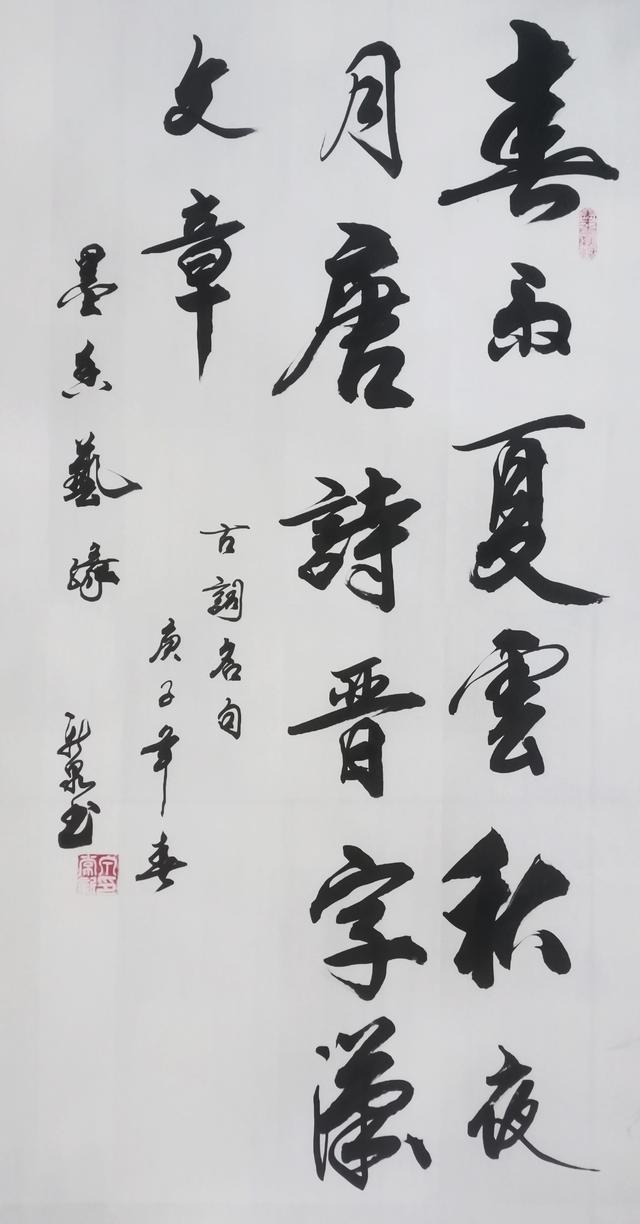 春雨夏雲秋夜
月唐詩晉字漢
文章
古詞名句
庚子年春
墨香藝緣
新泉书